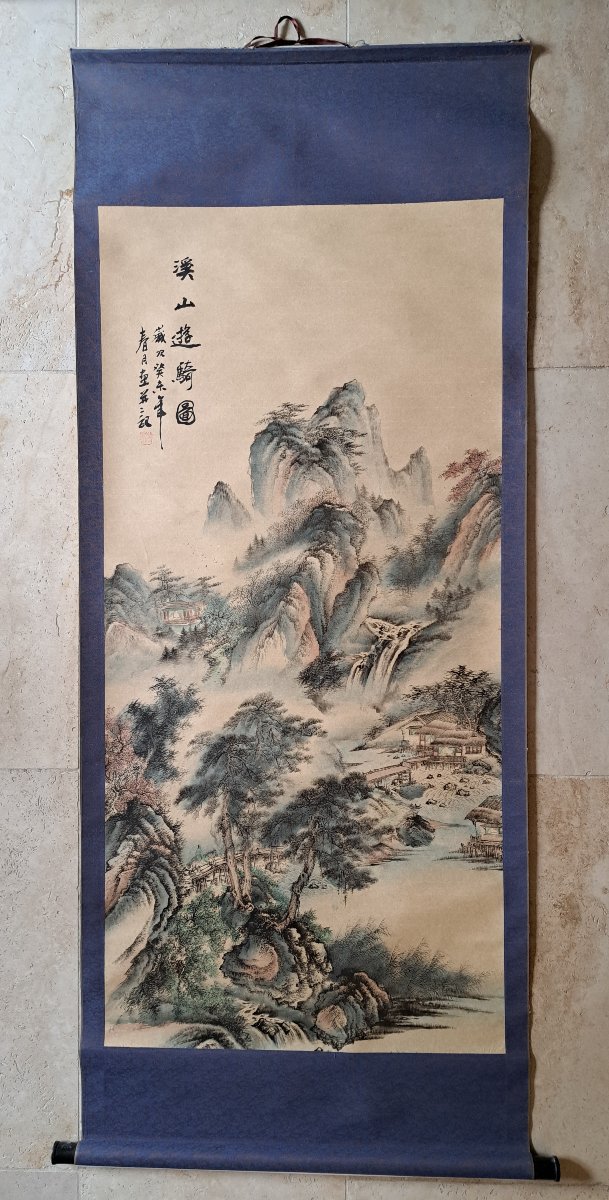 溪山遊騎圖
歲次癸未年
春月